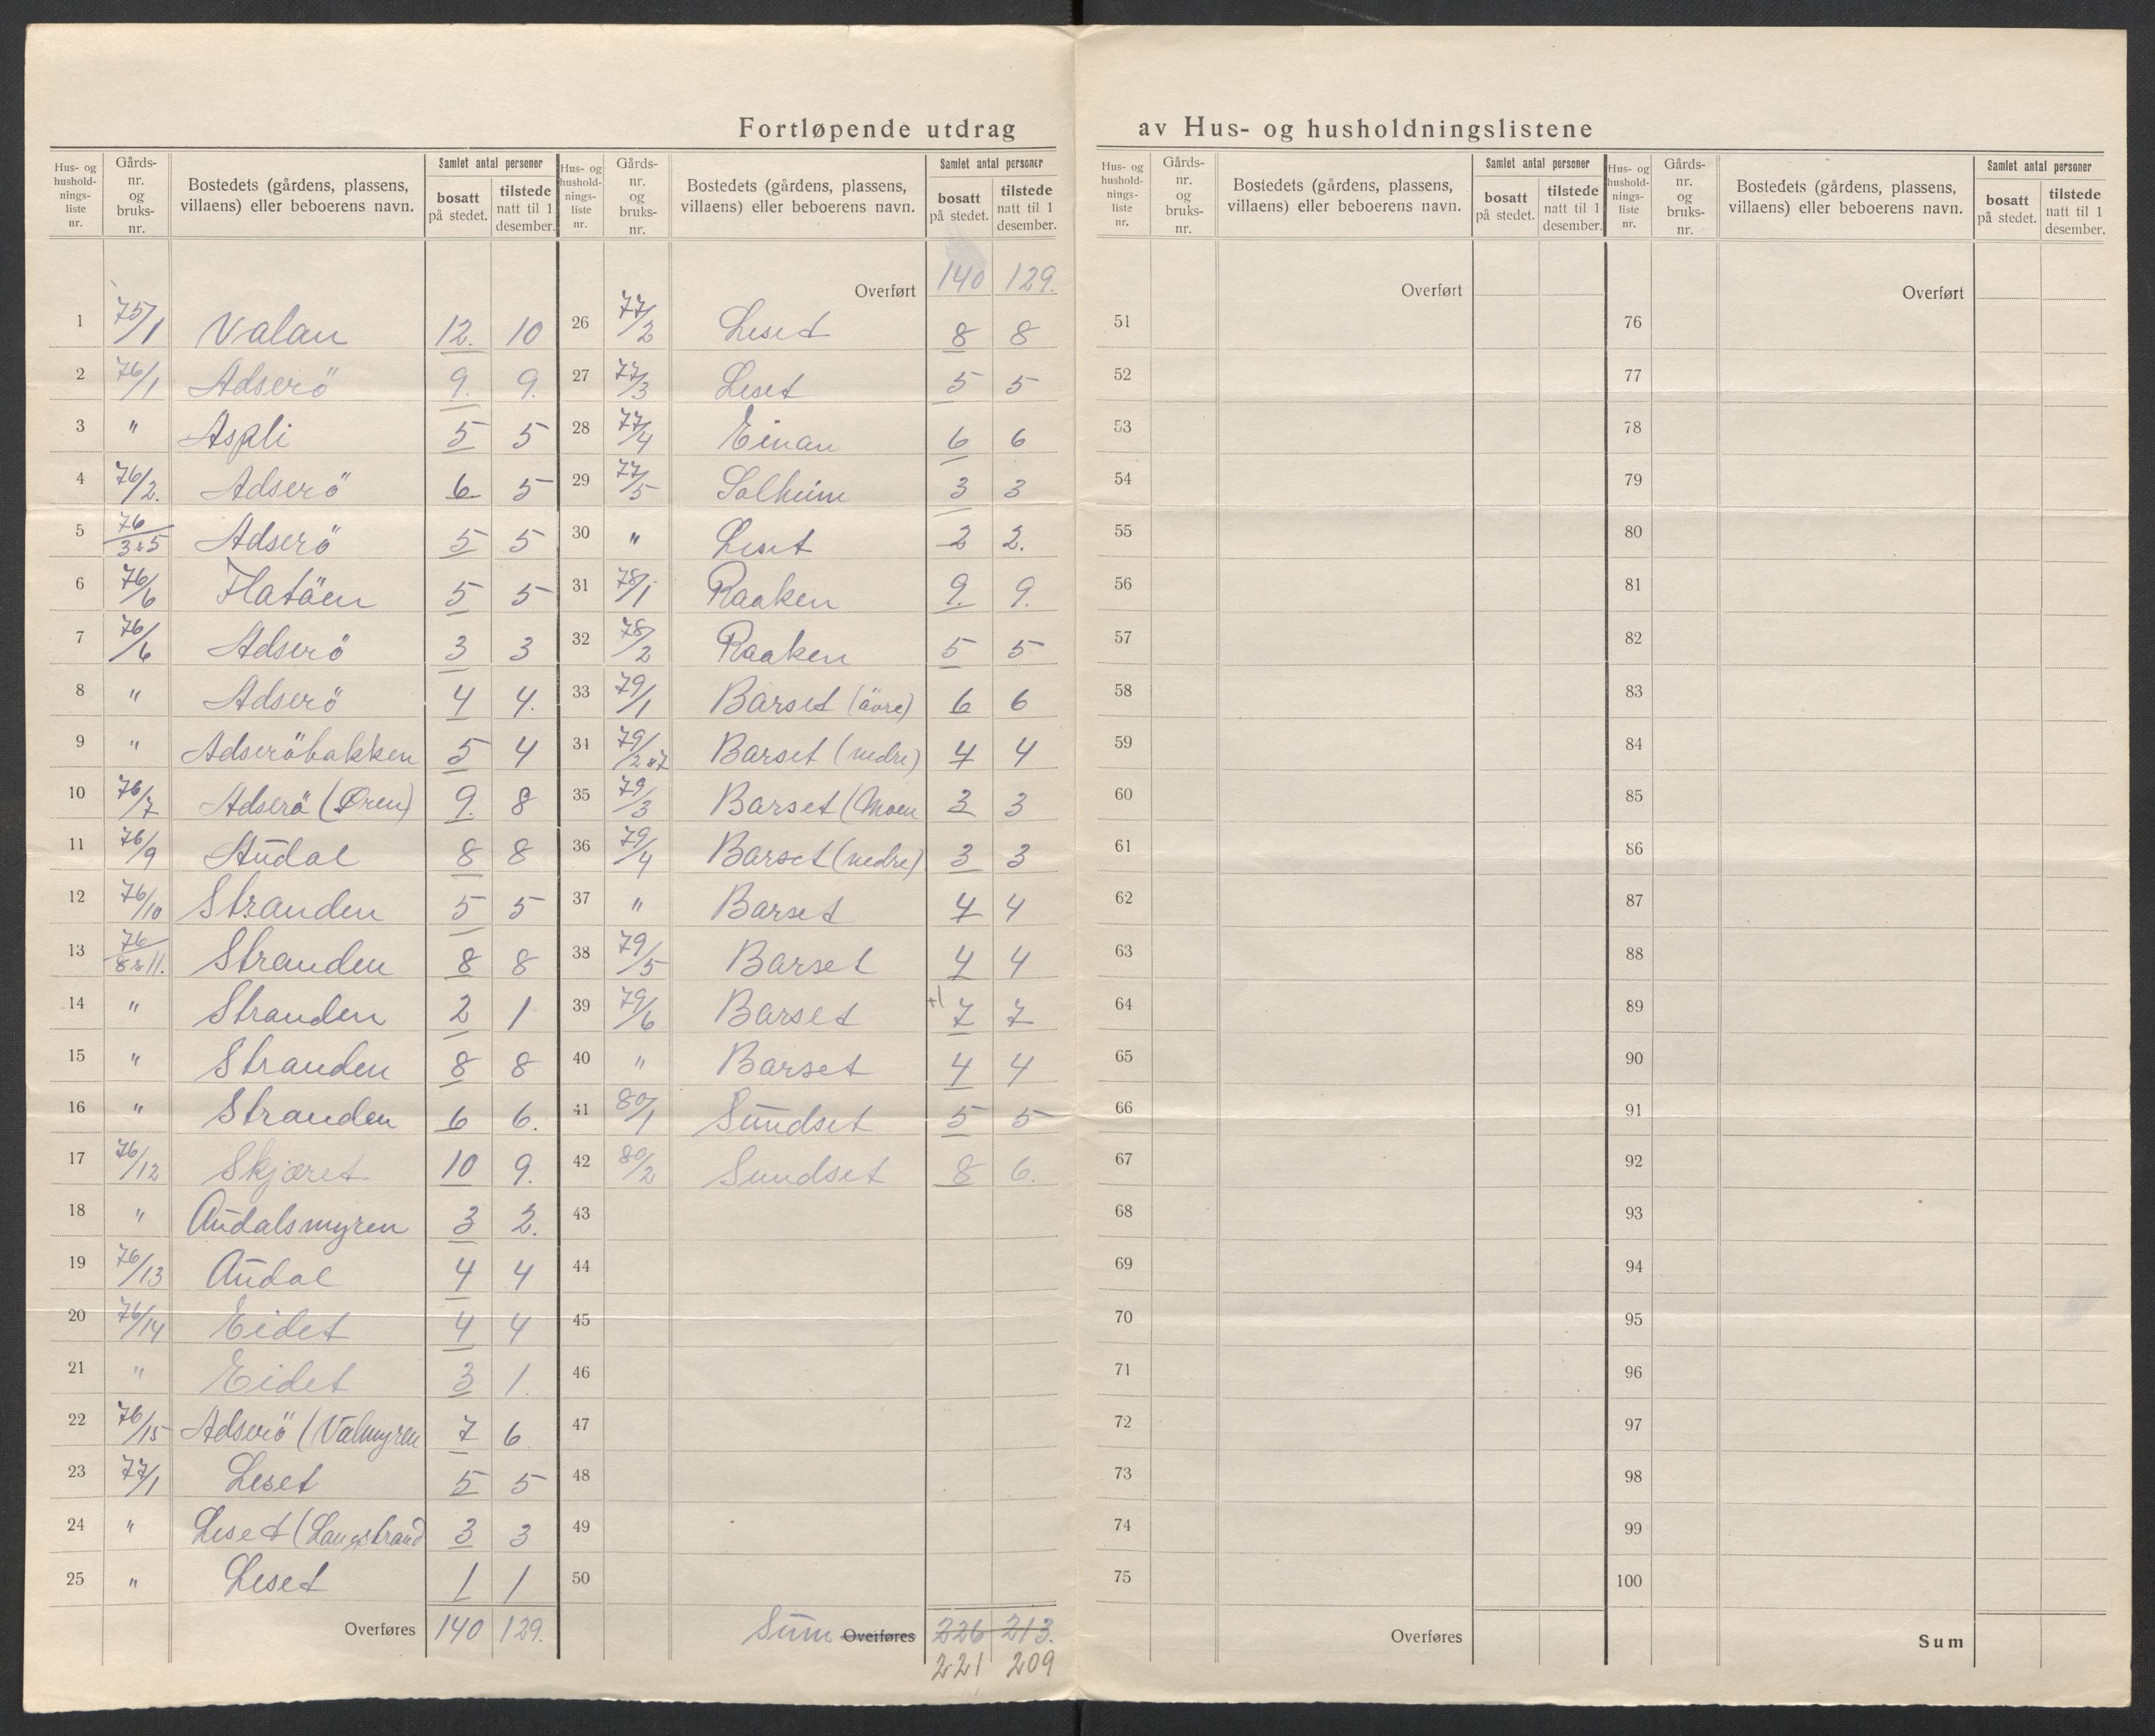 Fortløpende utdrag av Hus- og husholdningslistene
Hus- og hushold- nings- liste nr. Gårds- nr. og bruks- nr. Bostedets (gårdens, plassens, villaens) eller beboerens navn. Samlet antal personer bosatt på stedet. tilstede natt til 1 desember.
1 75/1 Valan 12. 10
2 76/1 Adserö 9. 9.
3 " Aspli 5 5
4 76/2. Adserö 6 5
5 76/3&5 Adserö 5 5
6 76/6 Flatöen 5 5
7 76/6 Adserö 3 3
8 " Adserö 4 4.
9 " Adseröbakken 5 4
10 76/7 Adserö (Øren) 9. 8
11 76/9 Audal 8 8
12 76/10 Stranden 5 5
13 76/8&11. Stranden 8 8
14 " Stranden 2 1
15 " Stranden 8 8
16 " Stranden 6 6.
17 76/12 Skjæret 10 9.
18 " Audalsmyren 3 2.
19 76/13 Audal 4 4
20 76/14 Eidet 4 4
21 " Eidet 3 1.
22 76/15 Adserö (Valmyren 7 6
23 77/1 Leset 5 5
24 " Leset (Langstrand 3 3
25 " Leset 1 1
Overføres 140 129.
Hus- og hushold- nings- liste nr. Gårds- nr. og bruks- nr. Bostedets (gårdens, plassens, villaens) eller beboerens navn. Samlet antal personer bosatt på stedet. tilstede natt til 1 desember.
Overført 140 129.
26 77/2 Leset 8 8
27 77/3 Leset 5 5
28 77/4 Einan 6 6
29 77/5 Solheim 3 3
30 " Leset 2 2.
31 78/1 Raaken 9. 9.
32 78/2 Raaken 5 5
33 79/1 Barset (övre) 6 6
34 79/2&7 Barset (nedre) 4 4
35 79/3 Barset (Moen 3 3
36 79/4 Barset (nedre) 3 3
37 " Barset 4 4
38 79/5 Barset 4 4
39 79/6 Barset +1 7 7
40 " Barset 4 4
41 80/1 Sundset 5 5
42 80/2 Sundset 8 6.
43
44
45
46
47
48
49
50
Sum Overføres 226 213.
221 209
Hus- og hushold- nings- liste nr. Gårds- nr. og bruks- nr. Bostedets (gårdens, plassens, villaens) eller beboerens navn. Samlet antal personer bosatt på stedet. tilstede natt til 1 desember.
Overført
51
52
53
54
55
56
57
58
59
60
61
62
63
64
65
66
67
68
69
70
71
72
73
74
75
Overføres
Hus- og hushold- nings- liste nr. Gårds- nr. og bruks- nr. Bostedets (gårdens, plassens, villaens) eller beboerens navn. Samlet antal personer bosatt på stedet. tilstede natt til 1 desember.
Overført
76
77
78
79
80
81
82
83
84
85
86
87
88
89
90
91
92
93
94
95
96
97
98
99
100
Sum